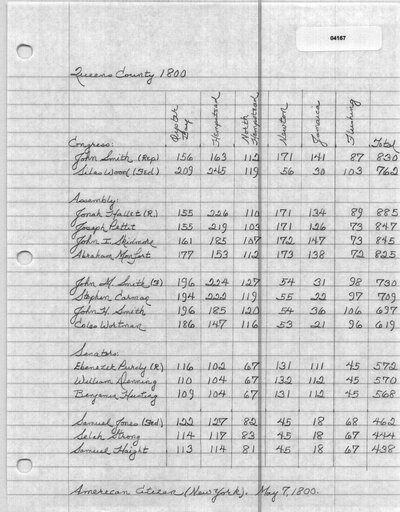 04167
Queens County 1800
Oyster Bay Hempstead North Hempstead Newton Jamaica Flushing Total
Congress:
John Smith (Rep) 156 163 112 171 141 87 830
Silas Wood (Fed) 209 245 119 56 30 103 762
Assembly:
Jonah Hallet (R.) 155 226 110 171 134 89 885
Joseph Pettit 155 219 103 171 126 73 847
John I. Skidmore 161 185 107 172 147 73 845
Abraham Monfort 177 153 112 173 138 72 825
John M. Smith (F) 196 224 127 54 31 98 730
Stephen Carman 194 222 119 55 22 97 709
John H. Smith 196 185 120 54 36 106 697
Wortman 186 147 116 53 21 96 619
Senators:
Ebenezer Purdy (R) 116 102 67 131 111 45 572
William Denning 110 104 67 132 112 45 570
Benjamin Hunting 109 104 67 131 112 45 568
Samuel Jones (Fed) 122 127 82 45 18 68 462
Selah Strong 114 117 83 45 18 67 444
Samuel Haight 113 114 81 45 18 67 438
American Citizen (New York). May 7, 1800.